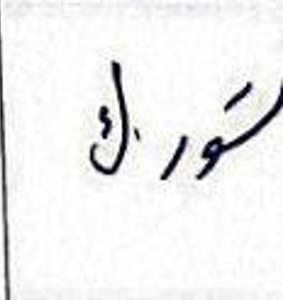 ستور.ك